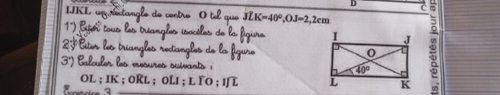 IJKL un rectangle de centre O tel que JLK=40°,OJ=2,2cm
1°) Citer tous les triangles isocèles de la figure
2°) Citer les triangles rectangles de la figure
3°) Calculer les mesures suivants :
OL ; IK ; OKL ; OLI ; LIO ; IJL
Exercice 3
D
I
J
O
40°
L
K
ts, répétés jour ap